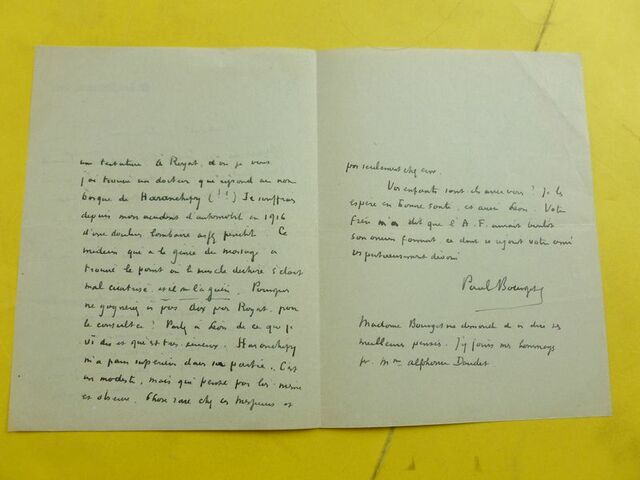 un                à Royat, d'où je vous
j'ai trouvé un docteur qui répond au nom
basque de Haranchipy (!!) Je souffrais
depuis mon accident d'automobile en 1916
d'une douleur lombaire assez pénible. Ce
médecin qui a le génie du massage a
trouvé le point où le muscle déchiré s'était
mal cicatrisé, et il m'a guéri. Pourquoi
ne                      par Royat, pour
le consulter? Parlez à Léon de ce que je
dis et qui est très sérieux. Haranchipy
m'a paru supérieur dans sa partie. C'est
un modeste, mais qui pense par lui-même
et observe. Chose rare chez ces Messieurs et
pas seulement chez eux.
Vos enfants sont-ils avec vous? Je les
espère en bonne santé, et aussi Léon. Votre
      m'a dit que l'A.F. aurait bientôt
son ancien format, ce dont se            votre ami
                        dévoué
Paul Bourget
Madame Bourget me demande de vous dire ses
meilleures pensées. J'y joins mes hommages
pr. Mme Alphonse Daudet